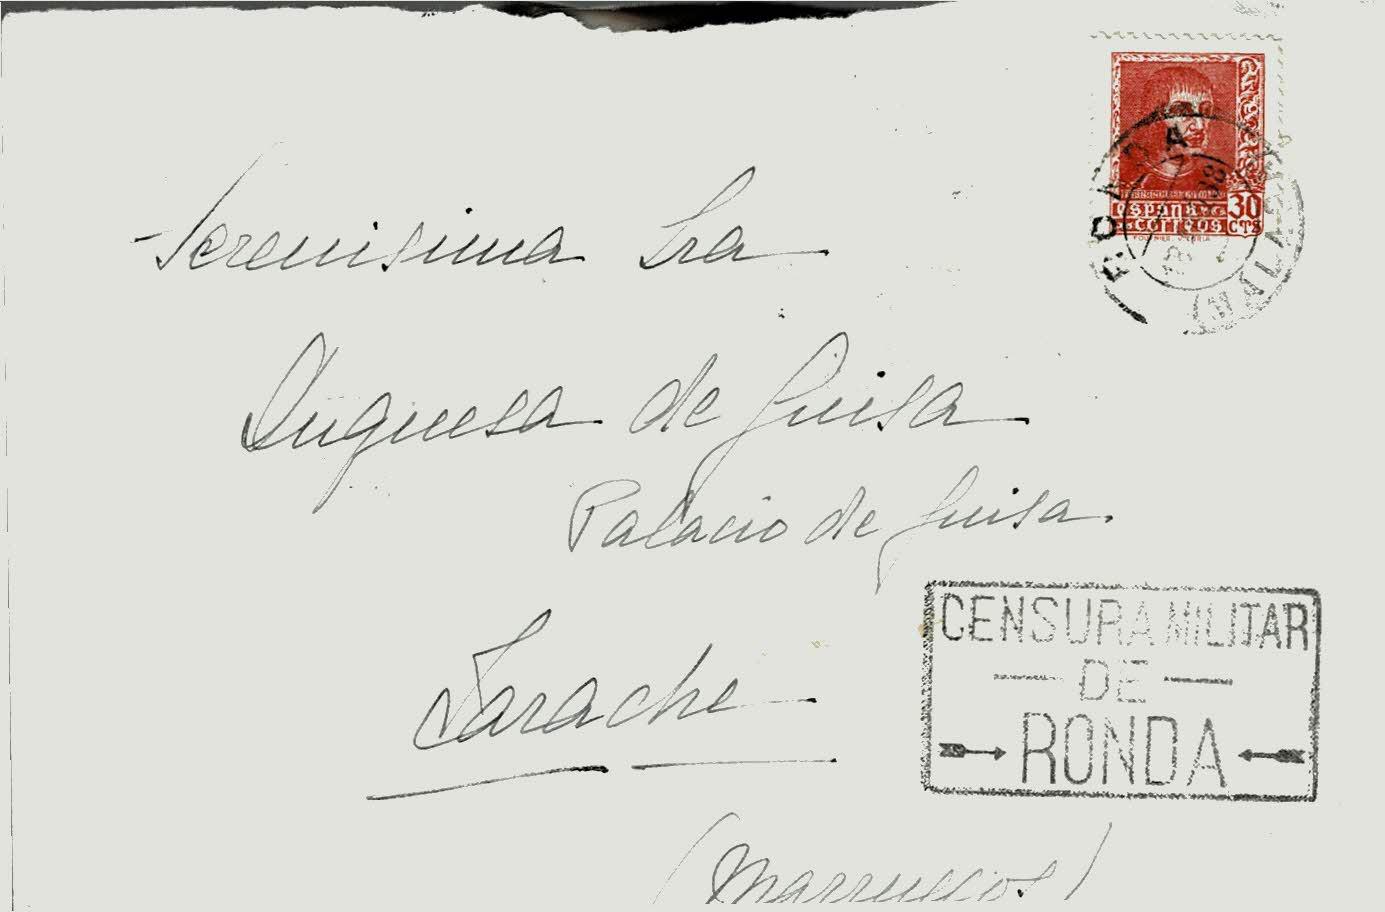 Serenisima Sra
Duquesa de Guisa
Palacio de Guisa.
Larache
(Marruecos)
ESPAÑA
CORREOS
30
CTS
RONDA
(MALAGA)
CENSURA MILITAR
DE
RONDA